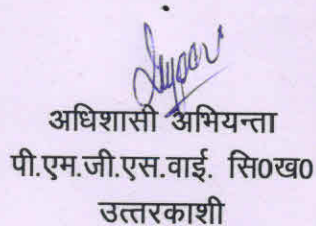 अधिशासी अभियन्ता
पी.एम.जी.एस.वाई. सि0ख0
उत्तरकाशी